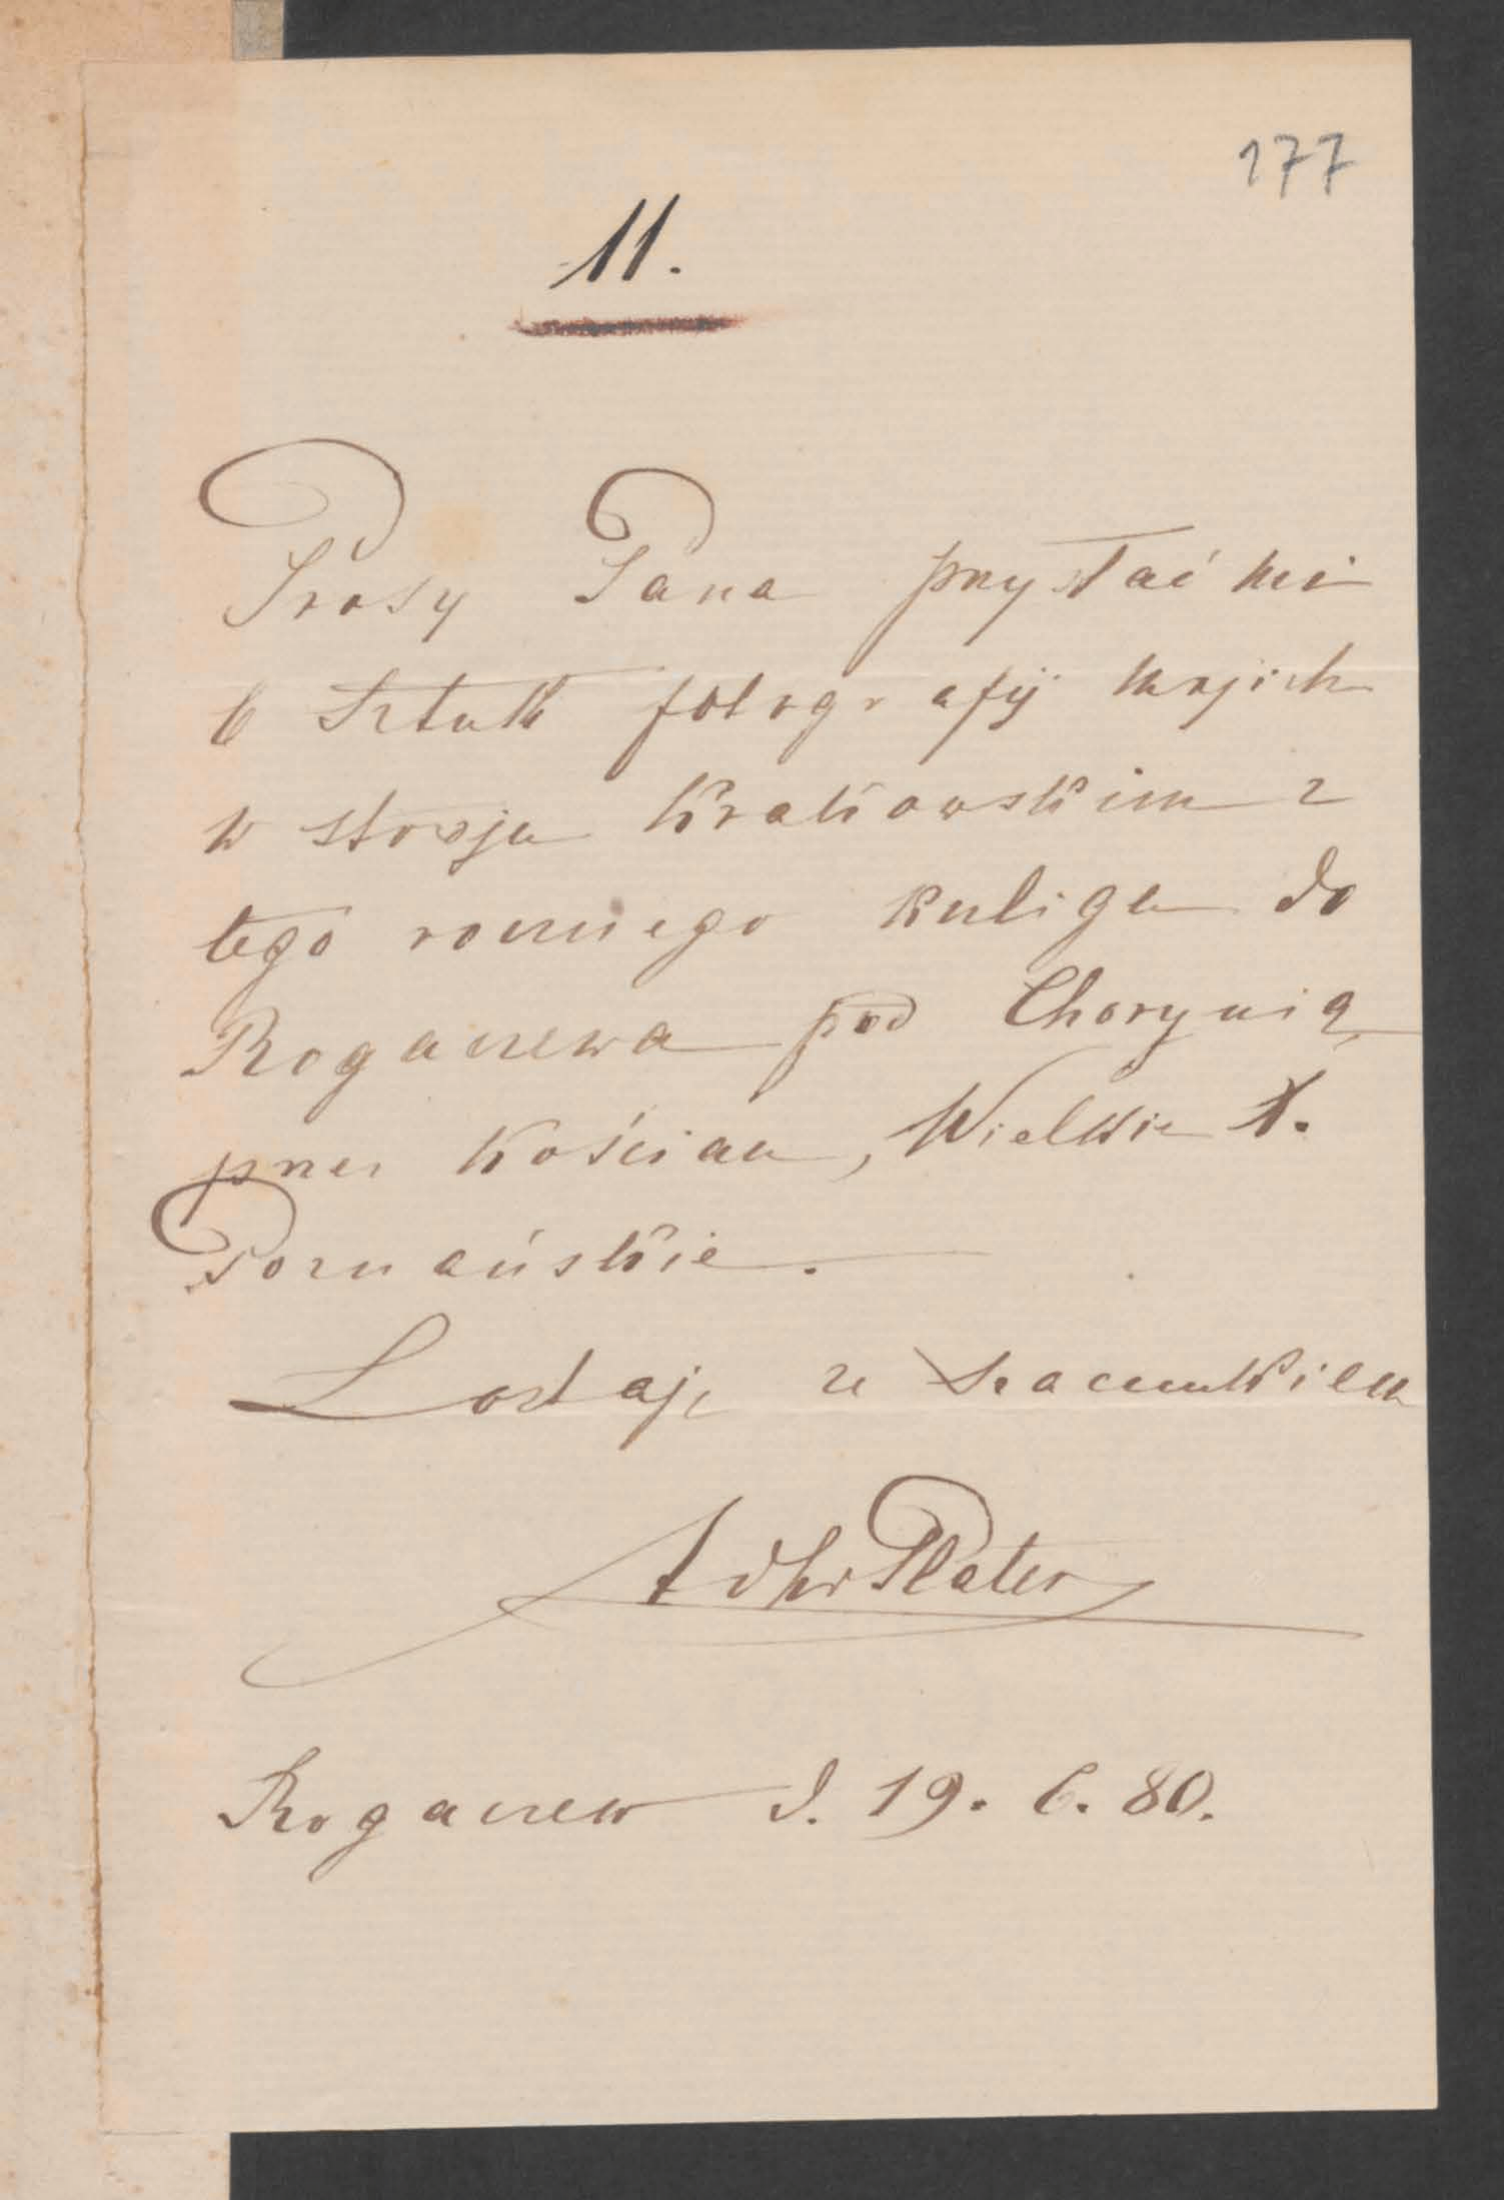 177
11.
Proszę Pana przysłać mi
6 sztuk fotografij mojich
w stroju Krakowskim z
tego rocznego kuligu do
Rogaczewa pod Chorynią
przez Kościan, Wielkie X.
Poznańskie.
Zostaję z szacunkiem
Plater
Rogaczew d. 19. 6. 80.